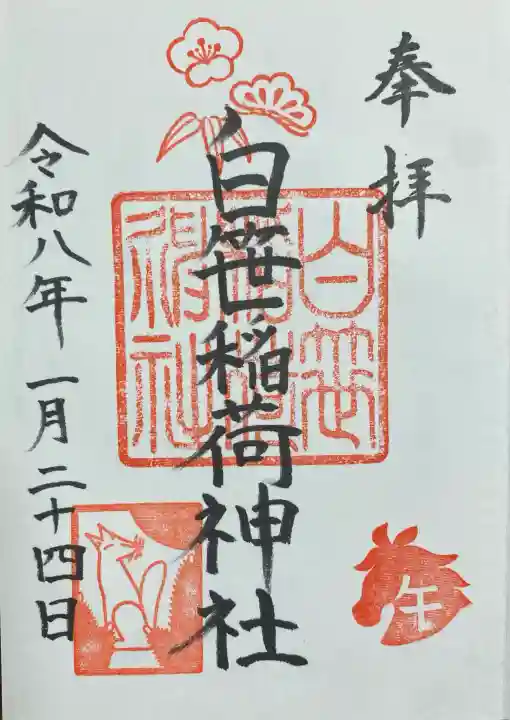 奉拝
白笹稲荷神社
白笹稲荷神社
令和八年一月二十四日
午